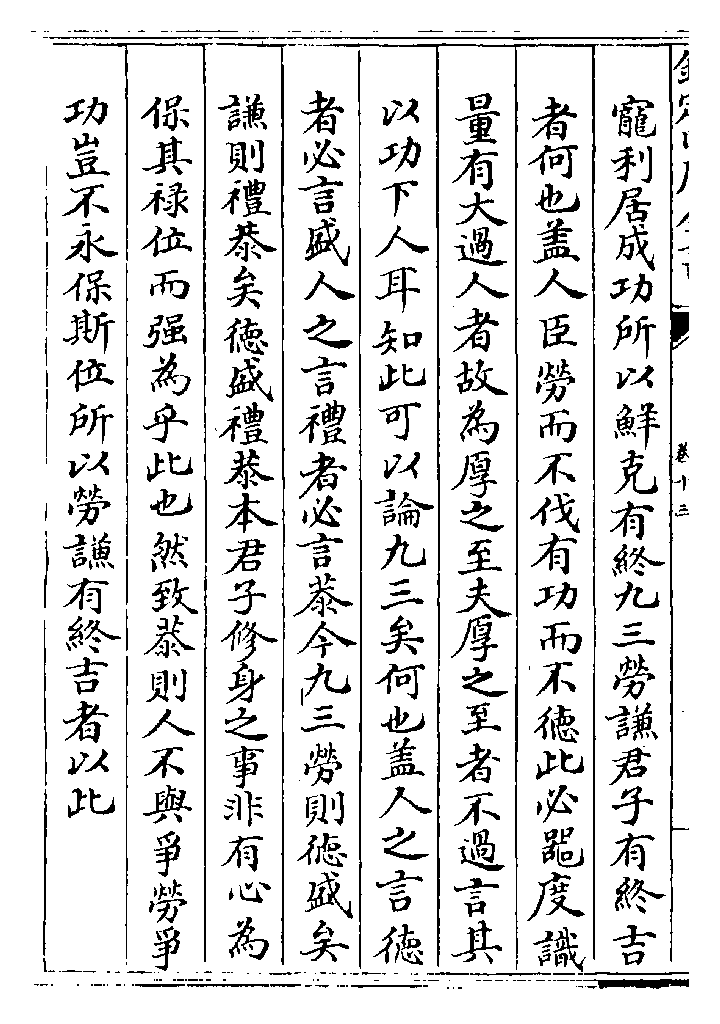 寵利居成功所以鮮克有終九三勞謙君子有終吉
者何也盖人臣勞而不伐有功而不徳此必器度識
量有大過人者故為厚之至夫厚之至者不過言其
以功下人耳知此可以論九三矣何也盖人之言徳
者必言盛人之言禮者必言恭今九三勞則徳盛矣
謙則禮恭矣徳盛禮恭本君子修身之事非有心為
保其禄位而强為乎此也然致恭則人不與爭勞爭
功豈不永保斯位所以勞謙有終吉者以此
卷十三